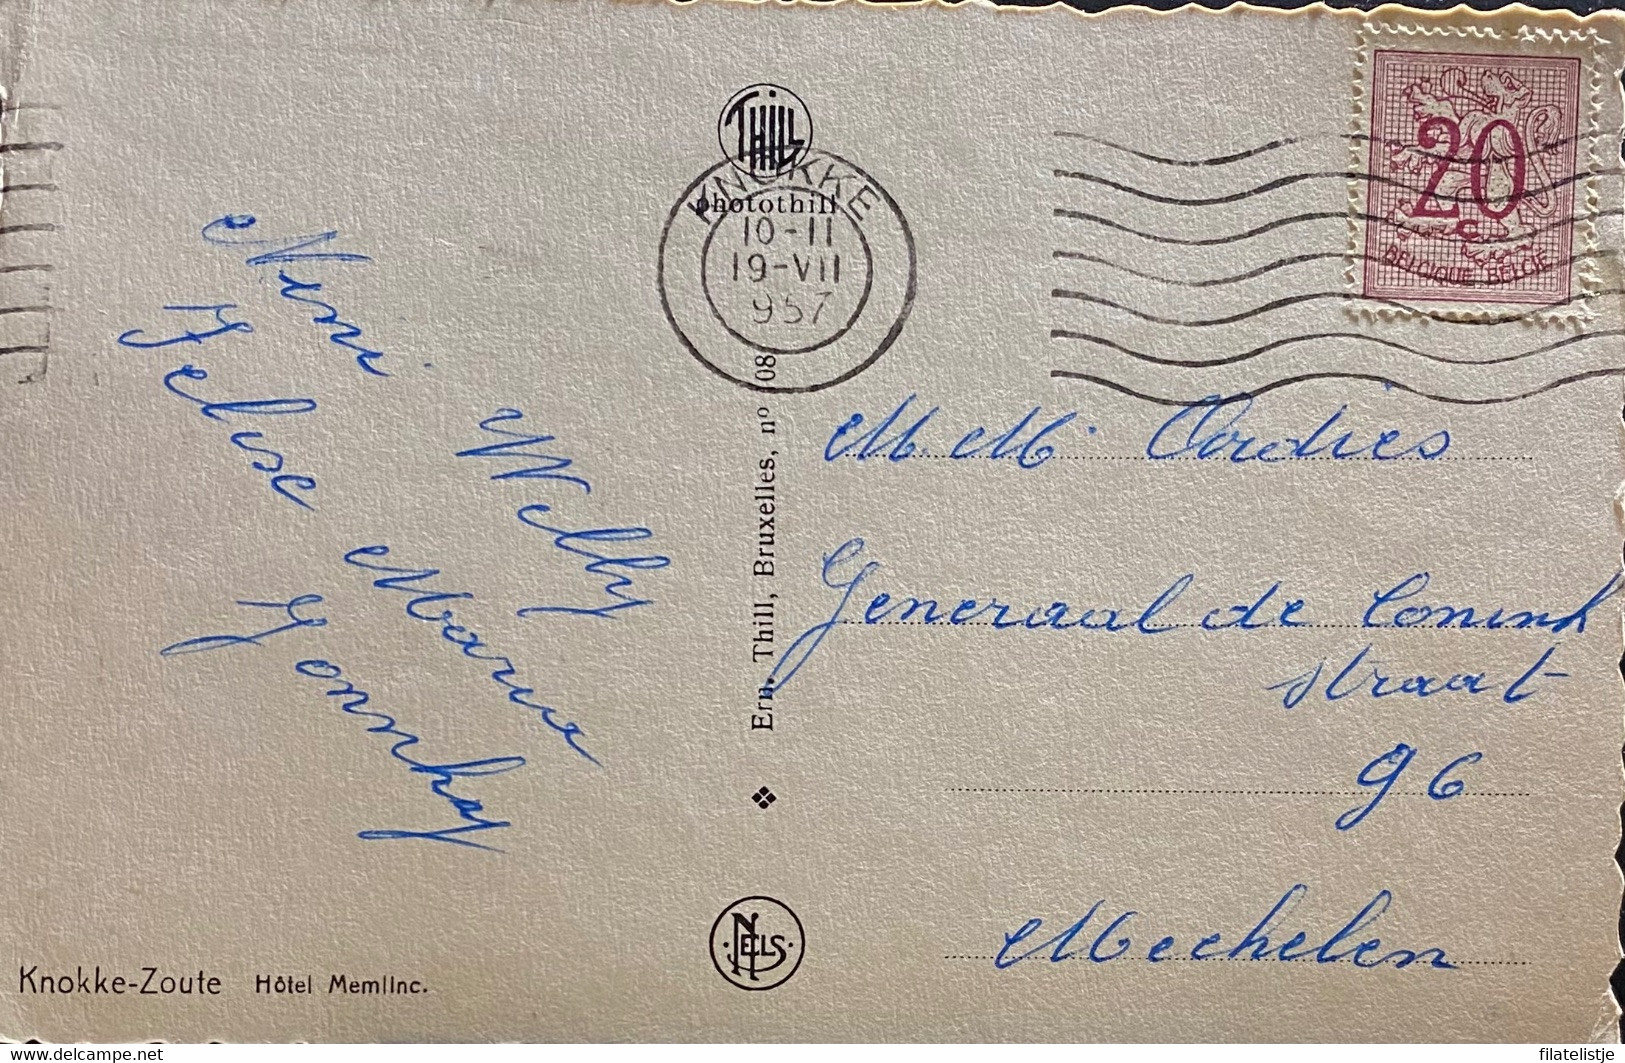 THILL
photothill
KNOKKE
10-11
19-VII
957
20
c
BELGIQUE-BELGIË
Nini Willy
Maria
M.M. Ordies
Generaal de Conink
straat
96
Mechelen
Ern. Thill, Bruxelles, nº 108
NELS
Knokke-Zoute Hôtel Memlinc.
delcampe.net
filatelistje